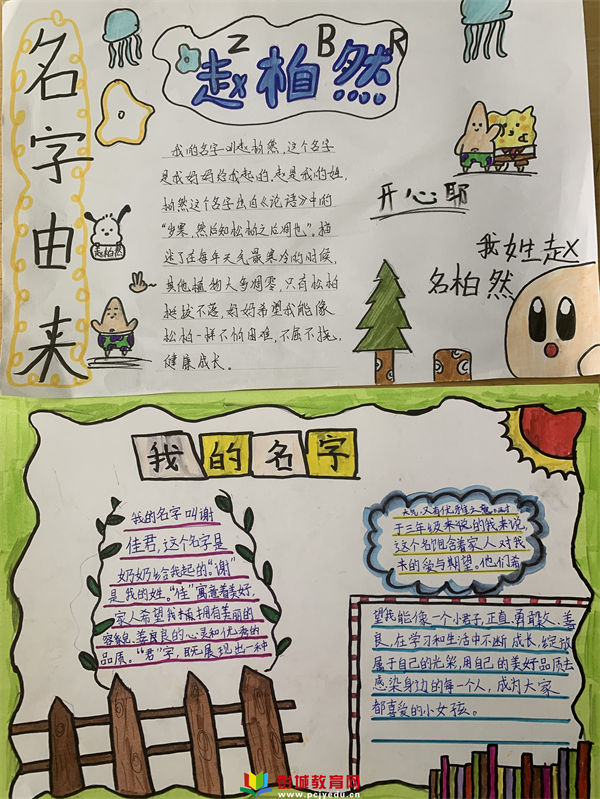 名字由来
Z B R
赵柏然
我的名字叫赵柏然,这个名字
是我妈妈给我起的,赵是我的姓,
柏然这个名字出自《论语》中的
“岁寒,然后知松柏之后凋也”。描
述了在每年天气最寒冷的时候,
其他植物大多凋零,只有松柏
挺拔不落,妈妈希望我能像
松柏一样不怕困难,不屈不挠,
健康成长。
赵柏然
开心耶
我姓赵
名柏然
我的名字
我的名字叫谢
佳君,这个名字是
奶奶给我起的。“谢”
是我的姓,“佳”寓意着美好,
家人希望我拥有美丽的
容貌、善良的心灵和优秀的
品质。“君”字,既展现出一种
大气,又有优雅之意。对
于三年级来说的我来说,
这个名饱含着家人对我
未的爱与期望。他们希
望我能像一个小君子,正直、勇敢、善
良,在学习和生活中不断成长,绽放
属于自己的光彩,用自己的美好品质去
感染身边的每一个人,成为大家
都喜爱的小女孩。
彭城教育网
www.pcjyedu.cn